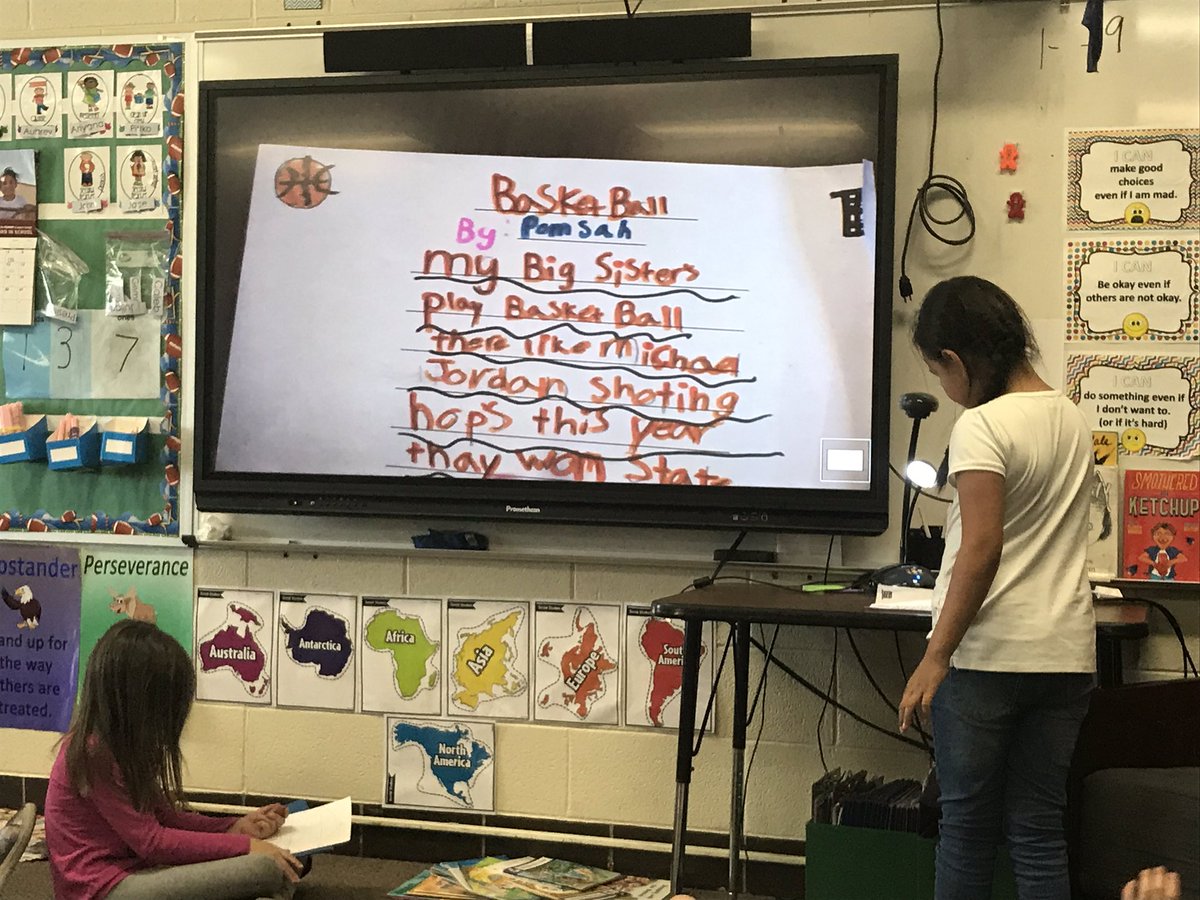 BasketBall
By: Pomsah
my Big Sisters
play BasketBall
there like Michael
Jordan shoting
hop's this year
thay wan State
Promethean
1 3 7
I CAN
make good
choices
even if I am mad.
I CAN
Be okay even if
others are not okay.
I CAN
do something even if
I don't want to.
(or if it's hard)
SMOTHERED
KETCHUP
Perseverance
and up for
the way
others are
treated.
Australia
Antarctica
Africa
Asia
Europe
North
America